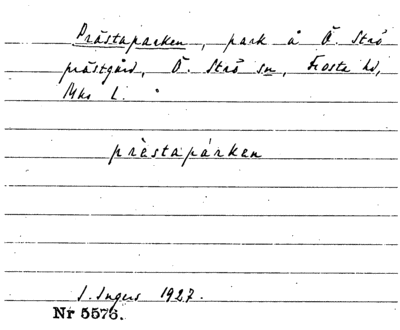 Prästaparken, park å Ö. Strö
prästgård, Ö. Strö sn, Frosta hd,
Mhs L.
prèstapárken
I. Ingers 1927.
Nr 5576.